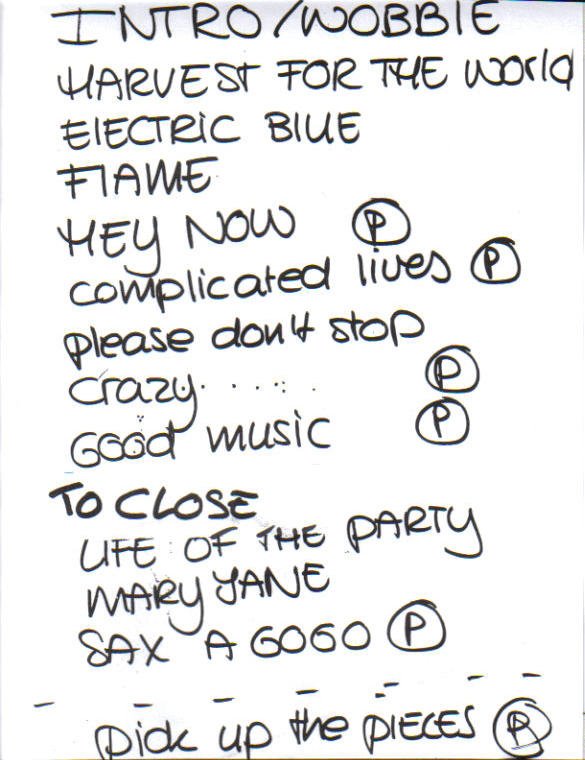 INTRO/WOBBIE
HARVEST FOR THE WORLD
ELECTRIC BLUE
FLAME
HEY NOW P
complicated lives P
please don't stop
crazy..... P
GOOD music P
TO CLOSE
LIFE OF THE PARTY
MARY JANE
SAX A GOGO P
pick up the PIECES P